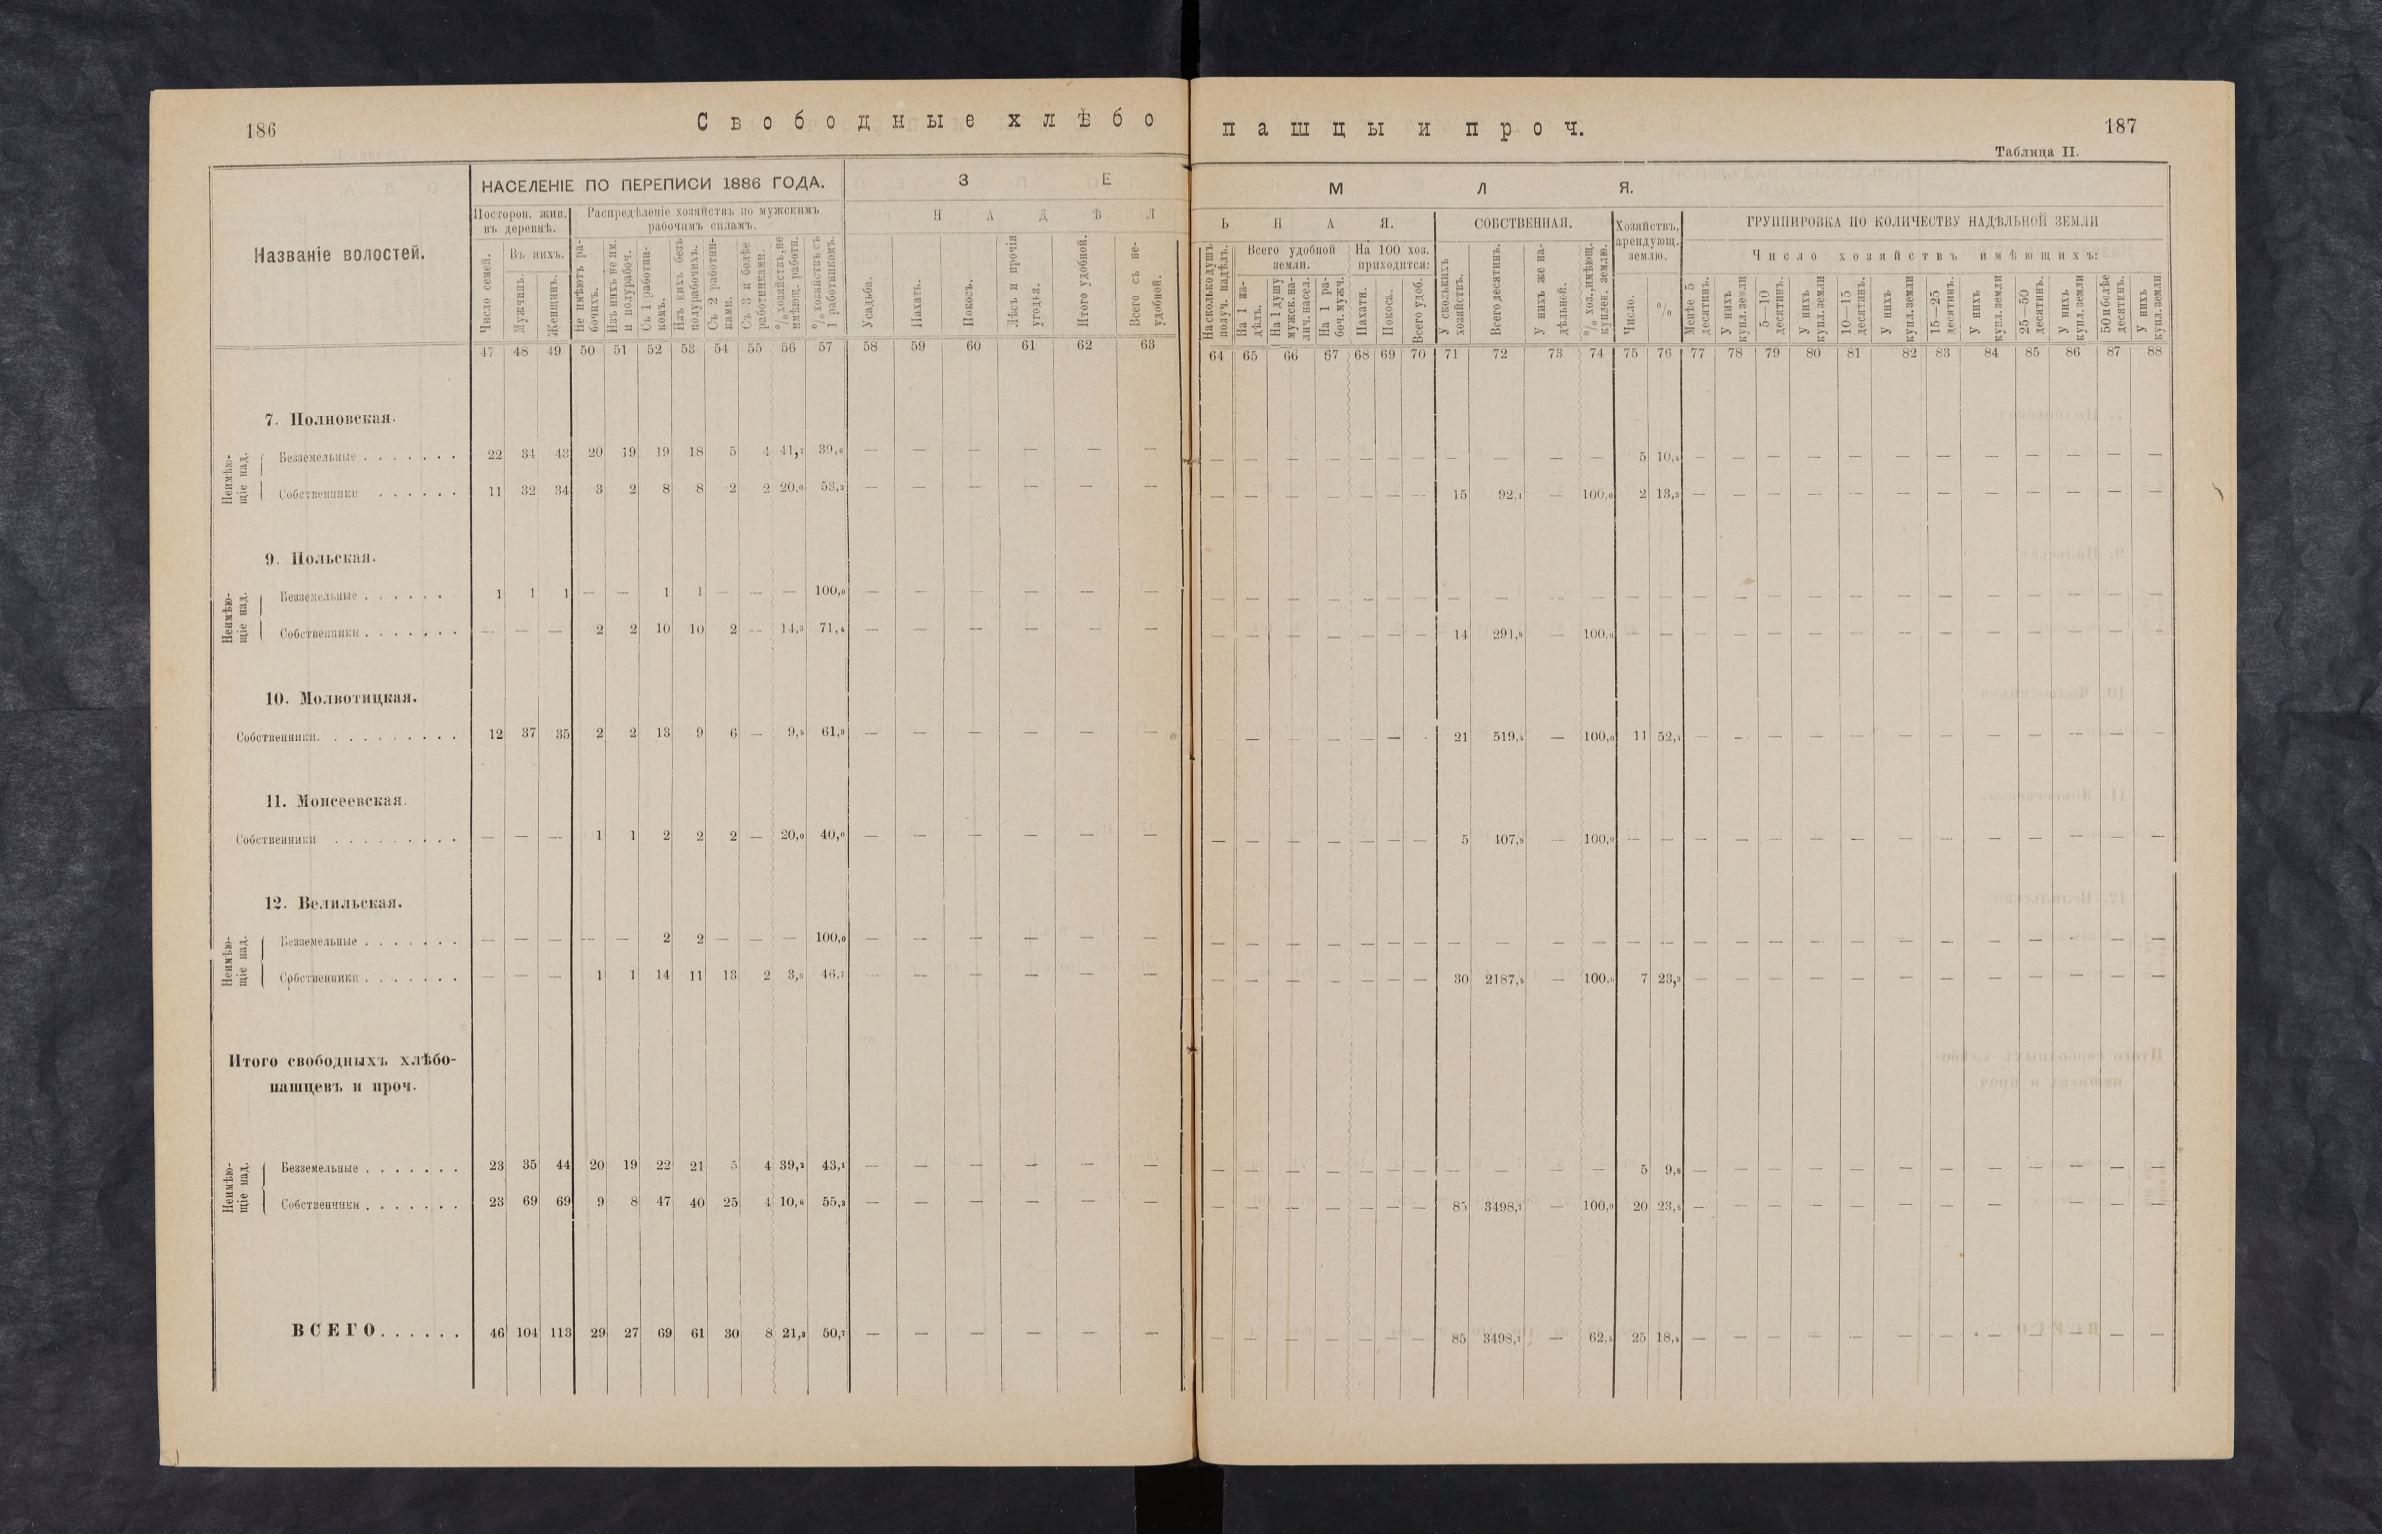 186
Свободные хлѣбо
НАСЕЛЕНІЕ ПО ПЕРЕПИСИ 1886 ГОДА.
З Е
Названіе волостей.
Посторон. жив. въ деревнѣ.
Распредѣленіе хозяйствъ по мужскимъ рабочимъ силамъ.
Н А Д Ѣ Л
Число семей.
Въ нихъ.
Мужчинъ.
Женщинъ.
Не имѣютъ рабочихъ.
Изъ нихъ не им. и полурабоч.
Съ 1 работникомъ.
Изъ нихъ безъ полурабочихъ.
Съ 2 работниками.
Съ 3 и болѣе работниками.
% хозяйствъ, не имѣющ. работн.
% хозяйствъ съ 1 работникомъ.
Усадьба.
Пахать.
Покосъ.
Лѣсъ и прочія угодья.
Итого удобной.
Всего съ неудобной.
47 48 49 50 51 52 53 54 55 56 57 58 59 60 61 62 63
7. Полновская.
Неимѣющіе над.
Безземельные . . . . . . . 22 34 43 20 19 19 18 5 4 41,7 39,6 — — — — — —
Собственники . . . . . . 11 32 34 3 2 8 8 2 2 20,0 53,3 — — — — — —
9. Польская.
Неимѣющіе над.
Безземельные . . . . . . 1 1 1 — — 1 1 — — — 100,0 — — — — — —
Собственники . . . . . . . — — — 2 2 10 10 2 — 14,3 71,4 — — — — — —
10. Молвотицкая.
Собственники. . . . . . . . . . 12 37 35 2 2 13 9 6 — 9,5 61,9 — — — — — —
11. Моисеевская.
Собственники . . . . . . . . . — — — 1 1 2 2 2 — 20,0 40,0 — — — — — —
12. Велильская.
Неимѣющіе над.
Безземельные . . . . . . . — — — — — 2 2 — — — 100,0 — — — — — —
Собственники . . . . . . . — — — 1 1 14 11 13 2 3,3 46,7 — — — — — —
Итого свободныхъ хлѣбо-
пашцевъ и проч.
Неимѣющіе над.
Безземельные . . . . . . . 23 35 44 20 19 22 21 5 4 39,2 43,1 — — — — — —
Собственники . . . . . . . 23 69 69 9 8 47 40 25 4 10,6 55,3 — — — — — —
ВСЕГО. . . . . . 46 104 113 29 27 69 61 30 8 21,3 50,7 — — — — — —
пашцы и проч.
187
Таблица II.
М Л Я.
Ь Н А Я.
СОБСТВЕННАЯ.
Хозяйствъ, арендующ. землю.
ГРУППИРОВКА ПО КОЛИЧЕСТВУ НАДѢЛЬНОЙ ЗЕМЛИ
Число хозяйствъ имѣющихъ:
На сколько душъ получ. надѣлъ.
Всего удобной земли.
На 1 надѣлъ.
На 1 душу мужск. налич. насел.
На 1 рабоч. мужч.
На 100 хоз. приходится:
Пахати.
Покоса.
Всего удоб.
У сколькихъ хозяйствъ.
Всего десятинъ.
У нихъ же надѣльной.
% хоз., имѣющ. куплен. землю.
Число.
%
Менѣе 5 десятинъ.
У нихъ купл. земли
5—10 десятинъ.
У нихъ купл. земли
10—15 десятинъ.
У нихъ купл. земли
15—25 десятинъ.
У нихъ купл. земли
25—50 десятинъ.
У нихъ купл. земли
50 и болѣе десятинъ.
У нихъ купл. земли
64 65 66 67 68 69 70 71 72 73 74 75 76 77 78 79 80 81 82 83 84 85 86 87 88
— — — — — — — — — — — 5 10,4 — — — — — — — — — — — —
— — — — — — — 15 92,1 — 100,0 2 13,3 — — — — — — — — — — — —
— — — — — — — — — — — — — — — — — — — — — — — — —
— — — — — — — 14 291,8 — 100,0 — — — — — — — — — — — — — —
— — — — — 21 519,4 — 100,0 11 52,3 — — — — — — — — — — — —
— — — — — — — 5 407,9 — 100,0 — — — — — — — — — — — — — —
— — — — — — — — — — — — — — — — — — — — — — — — —
— — — — — — — 30 2187,5 — 100,0 7 23,3 — — — — — — — — — — — —
— — — — — — — — — — — 5 9,8 — — — — — — — — — — — —
— — — — — — — 85 3498,7 — 100,0 20 23,5 — — — — — — — — — — — —
— — — — — — — 85 3498,7 — 62,5 25 18,4 — — — — — — — — — — — —